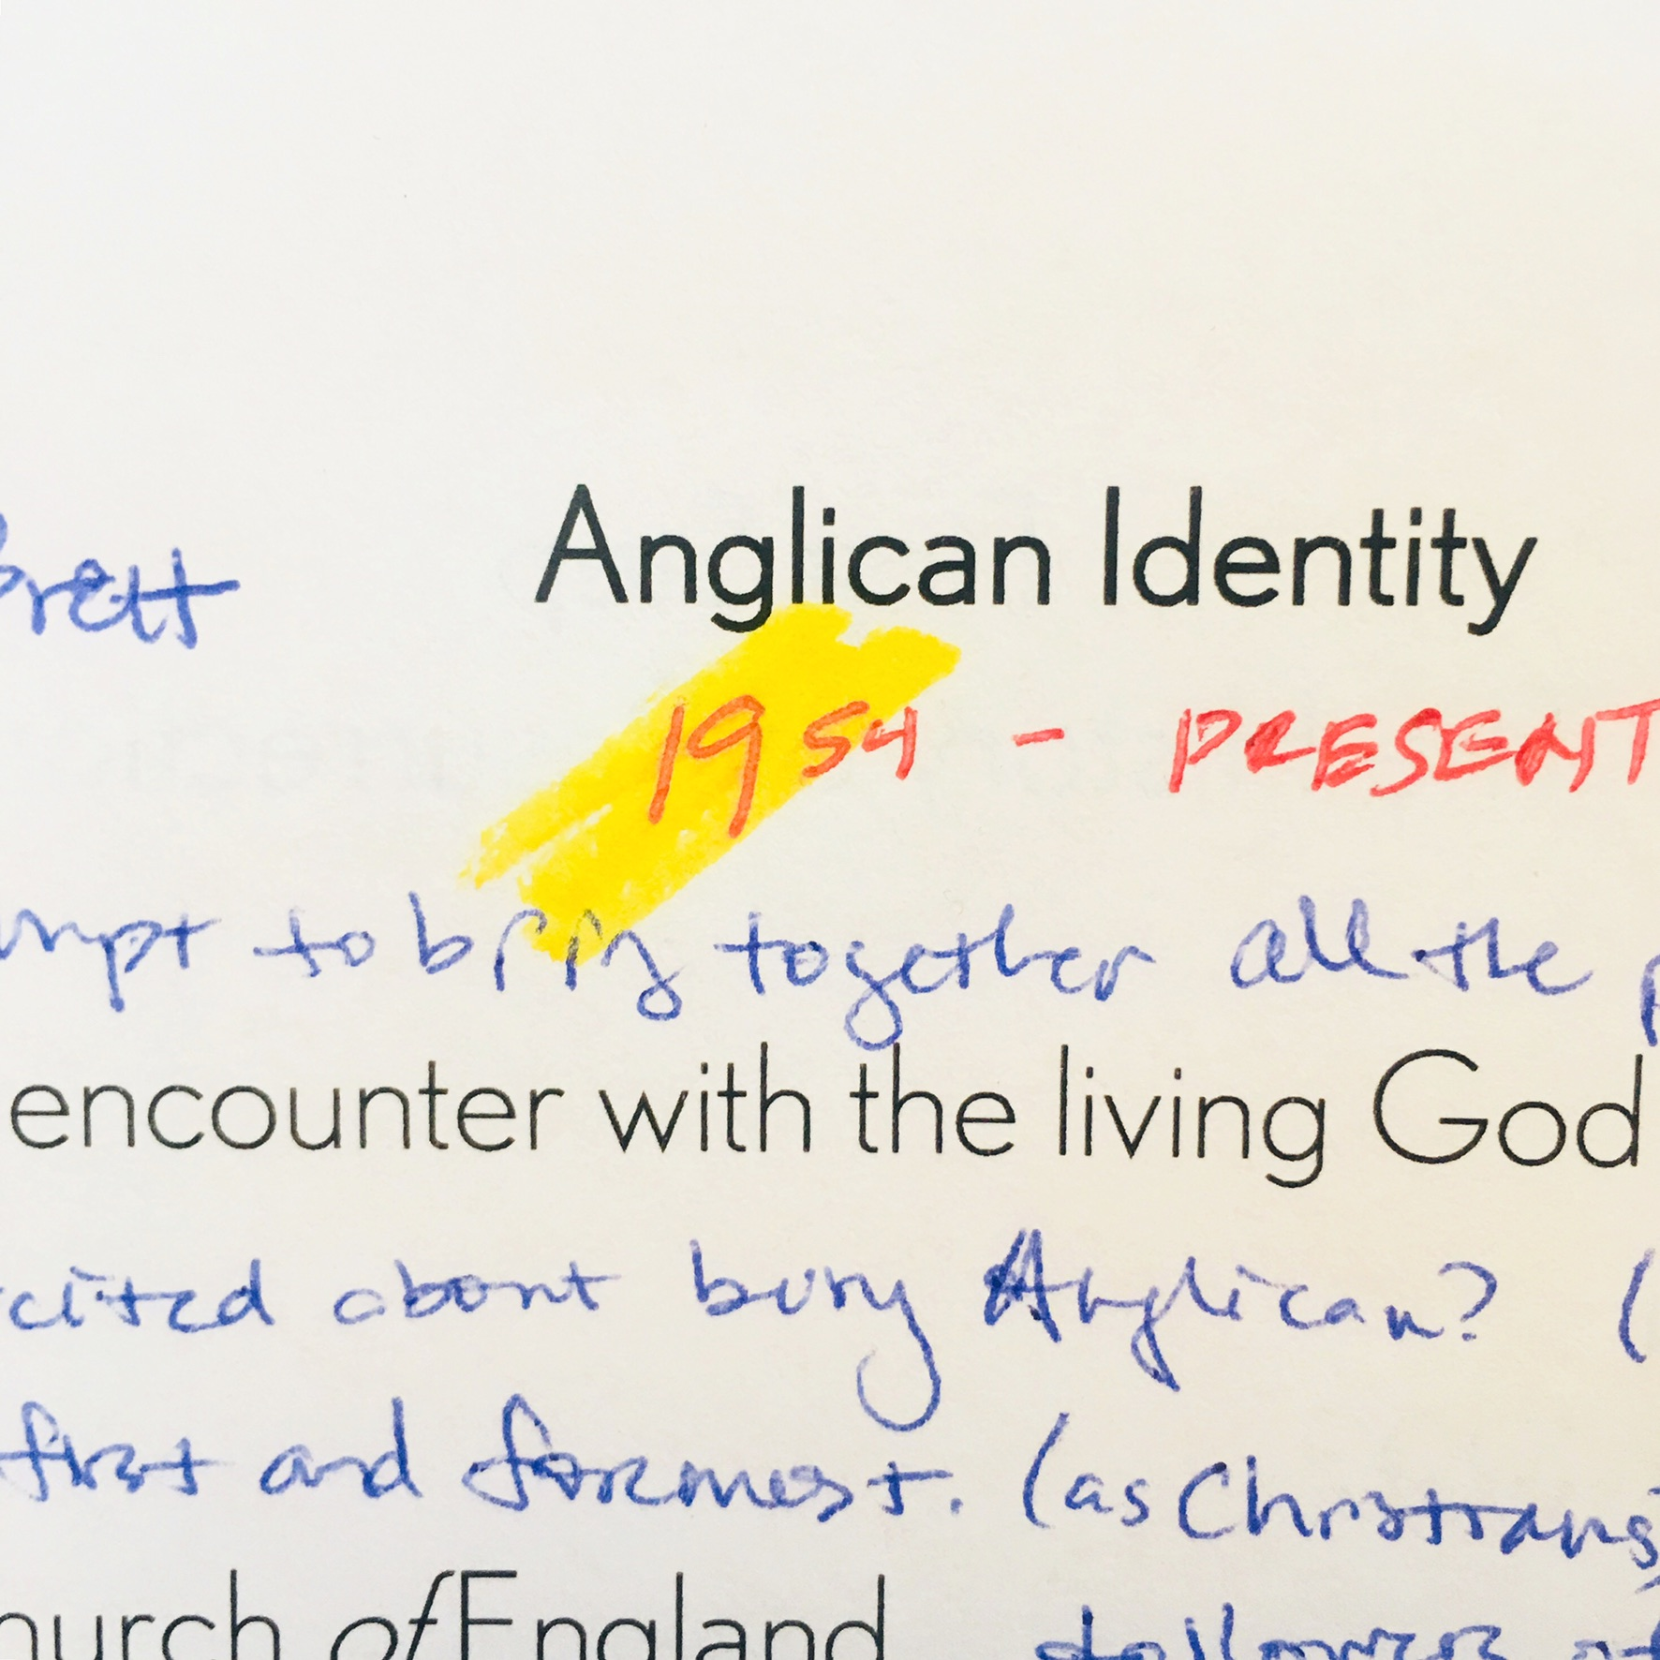 Brett Anglican Identity
1954 - PRESENT
mpt to bring together all the p
encounter with the living God
cited about being Anglican? (
first and foremost. (as Christians,
hurch of England followers of